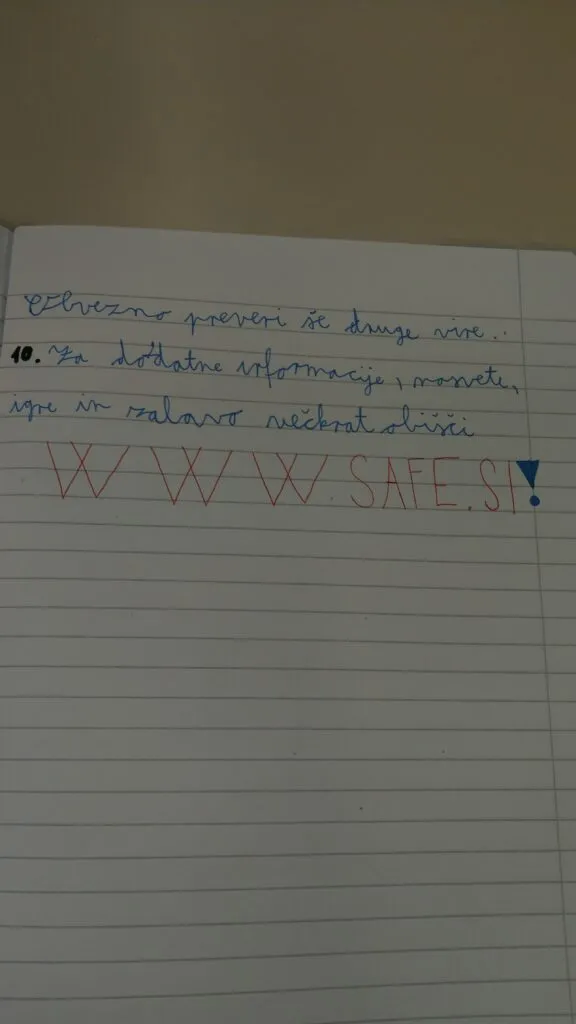 Obvezno preveri še druge vire.
10. Za dodatne informacije, nasvete,
igre in zabavo večkrat obišči
WWW.SAFE.SI!